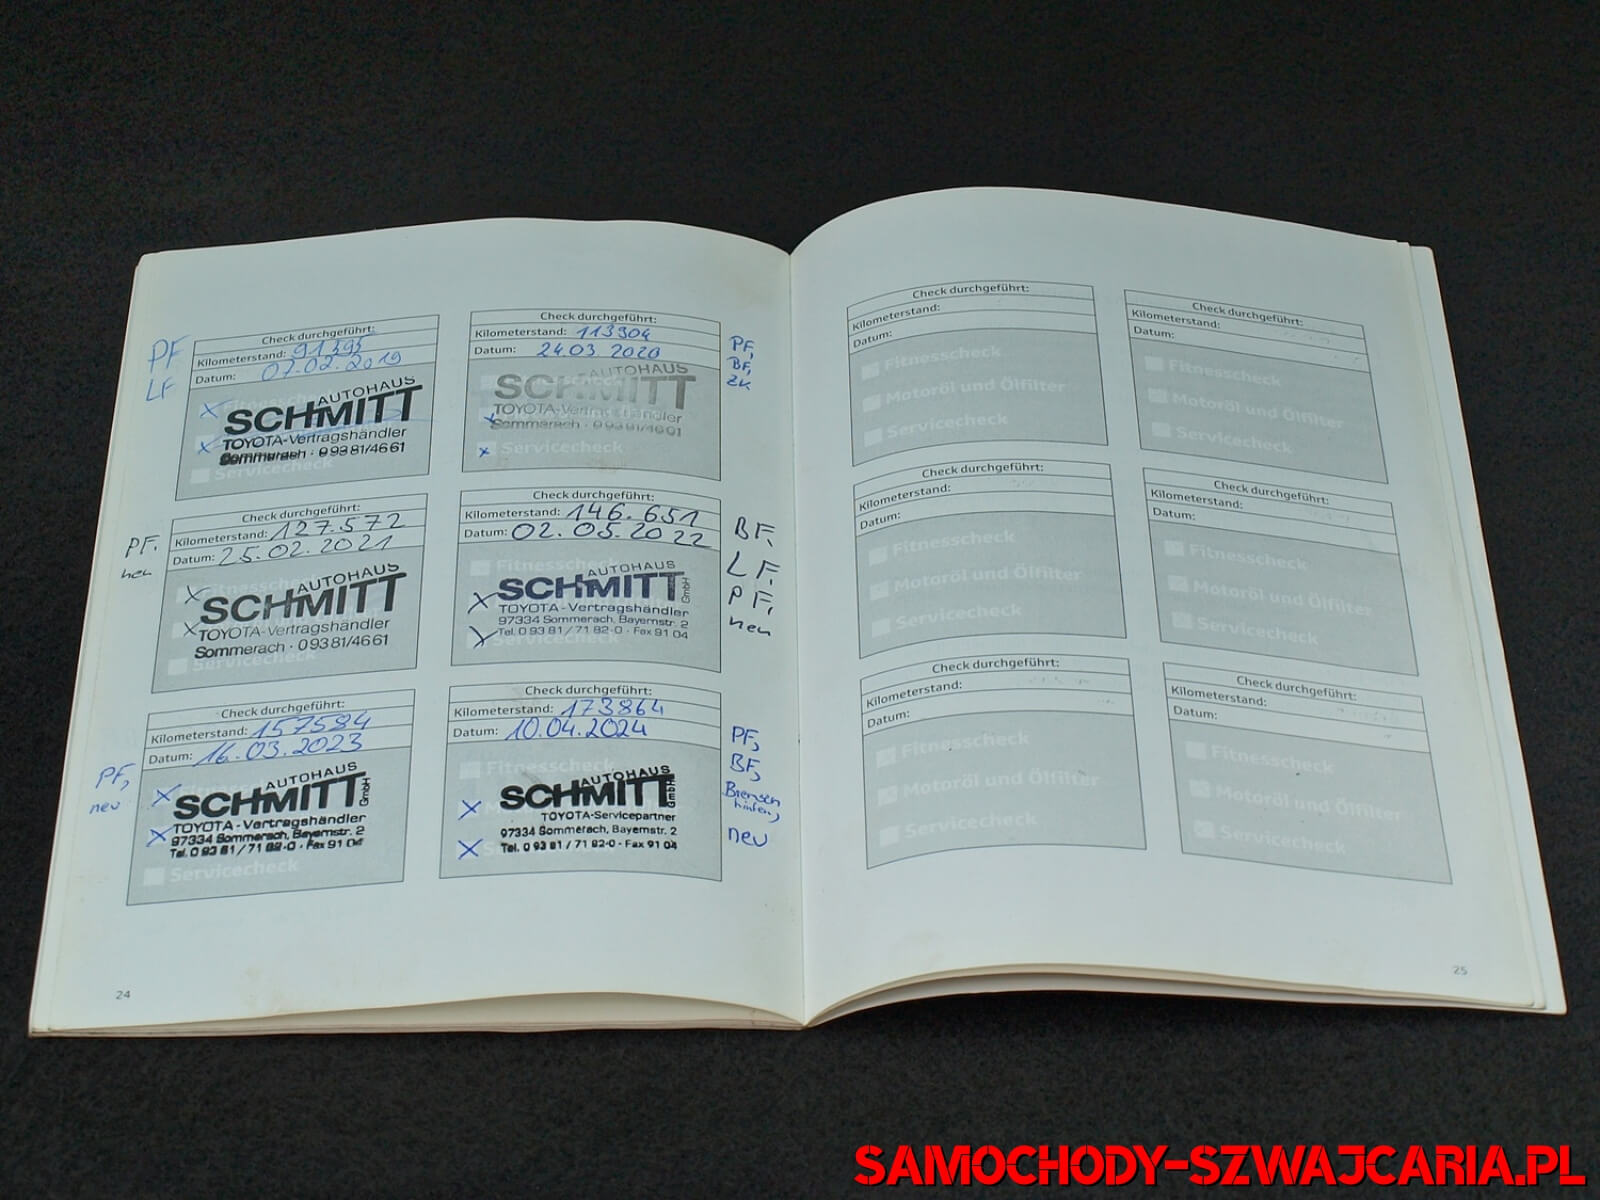 PF
LF
Check durchgeführt:
Kilometerstand: 91395
Datum: 07.02.2019
Fitnesscheck
AUTOHAUS
SCHMITT
TOYOTA-Vertragshändler
Sommerach · 09381/4661
Servicecheck
Check durchgeführt:
Kilometerstand: 113304
Datum: 24.03.2020
AUTOHAUS
SCHMITT
TOYOTA-Vertragshändler
Sommerach · 09381/4661
Servicecheck
PF,
BF,
ZK
PF,
neu
Check durchgeführt:
Kilometerstand: 127.572
Datum: 25.02.2021
Fitnesscheck
AUTOHAUS
SCHMITT
TOYOTA-Vertragshändler
Sommerach · 09381/4661
Servicecheck
Check durchgeführt:
Kilometerstand: 146.651
Datum: 02.05.2022
Fitnesscheck
AUTOHAUS
SCHMITT GmbH
TOYOTA-Vertragshändler
97334 Sommerach, Bayernstr. 2
Tel. 0 93 81 / 71 82-0 · Fax 91 04
Servicecheck
BF,
LF,
PF,
neu
PF,
neu
Check durchgeführt:
Kilometerstand: 157584
Datum: 16.03.2023
AUTOHAUS
SCHMITT GmbH
TOYOTA-Vertragshändler
97334 Sommerach, Bayernstr. 2
Tel. 0 93 81 / 71 82-0 · Fax 91 04
Servicecheck
Check durchgeführt:
Kilometerstand: 173864
Datum: 10.04.2024
Fitnesscheck
AUTOHAUS
SCHMITT GmbH
TOYOTA-Servicepartner
97334 Sommerach, Bayernstr. 2
Tel. 0 93 81 / 71 82-0 · Fax 91 04
PF,
BF,
Bremsen
hinten,
neu
24
Check durchgeführt:
Kilometerstand:
Datum:
Fitnesscheck
Motoröl und Ölfilter
Servicecheck
Check durchgeführt:
Kilometerstand:
Datum:
Fitnesscheck
Motoröl und Ölfilter
Servicecheck
Check durchgeführt:
Kilometerstand:
Datum:
Fitnesscheck
Motoröl und Ölfilter
Servicecheck
Check durchgeführt:
Kilometerstand:
Datum:
Fitnesscheck
Motoröl und Ölfilter
Servicecheck
Check durchgeführt:
Kilometerstand:
Datum:
Fitnesscheck
Motoröl und Ölfilter
Servicecheck
Check durchgeführt:
Kilometerstand:
Datum:
Fitnesscheck
Motoröl und Ölfilter
Servicecheck
25
SAMOCHODY-SZWAJCARIA.PL